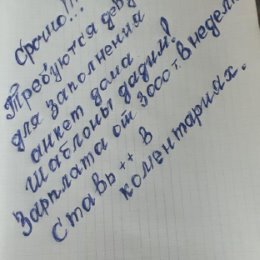 Срочно!!!
Требуются
для заполнения
анкет дома
Шаблоны дадим!
Зарплата от 3000 т. в неделю
Ставь ++ в
коментариях.